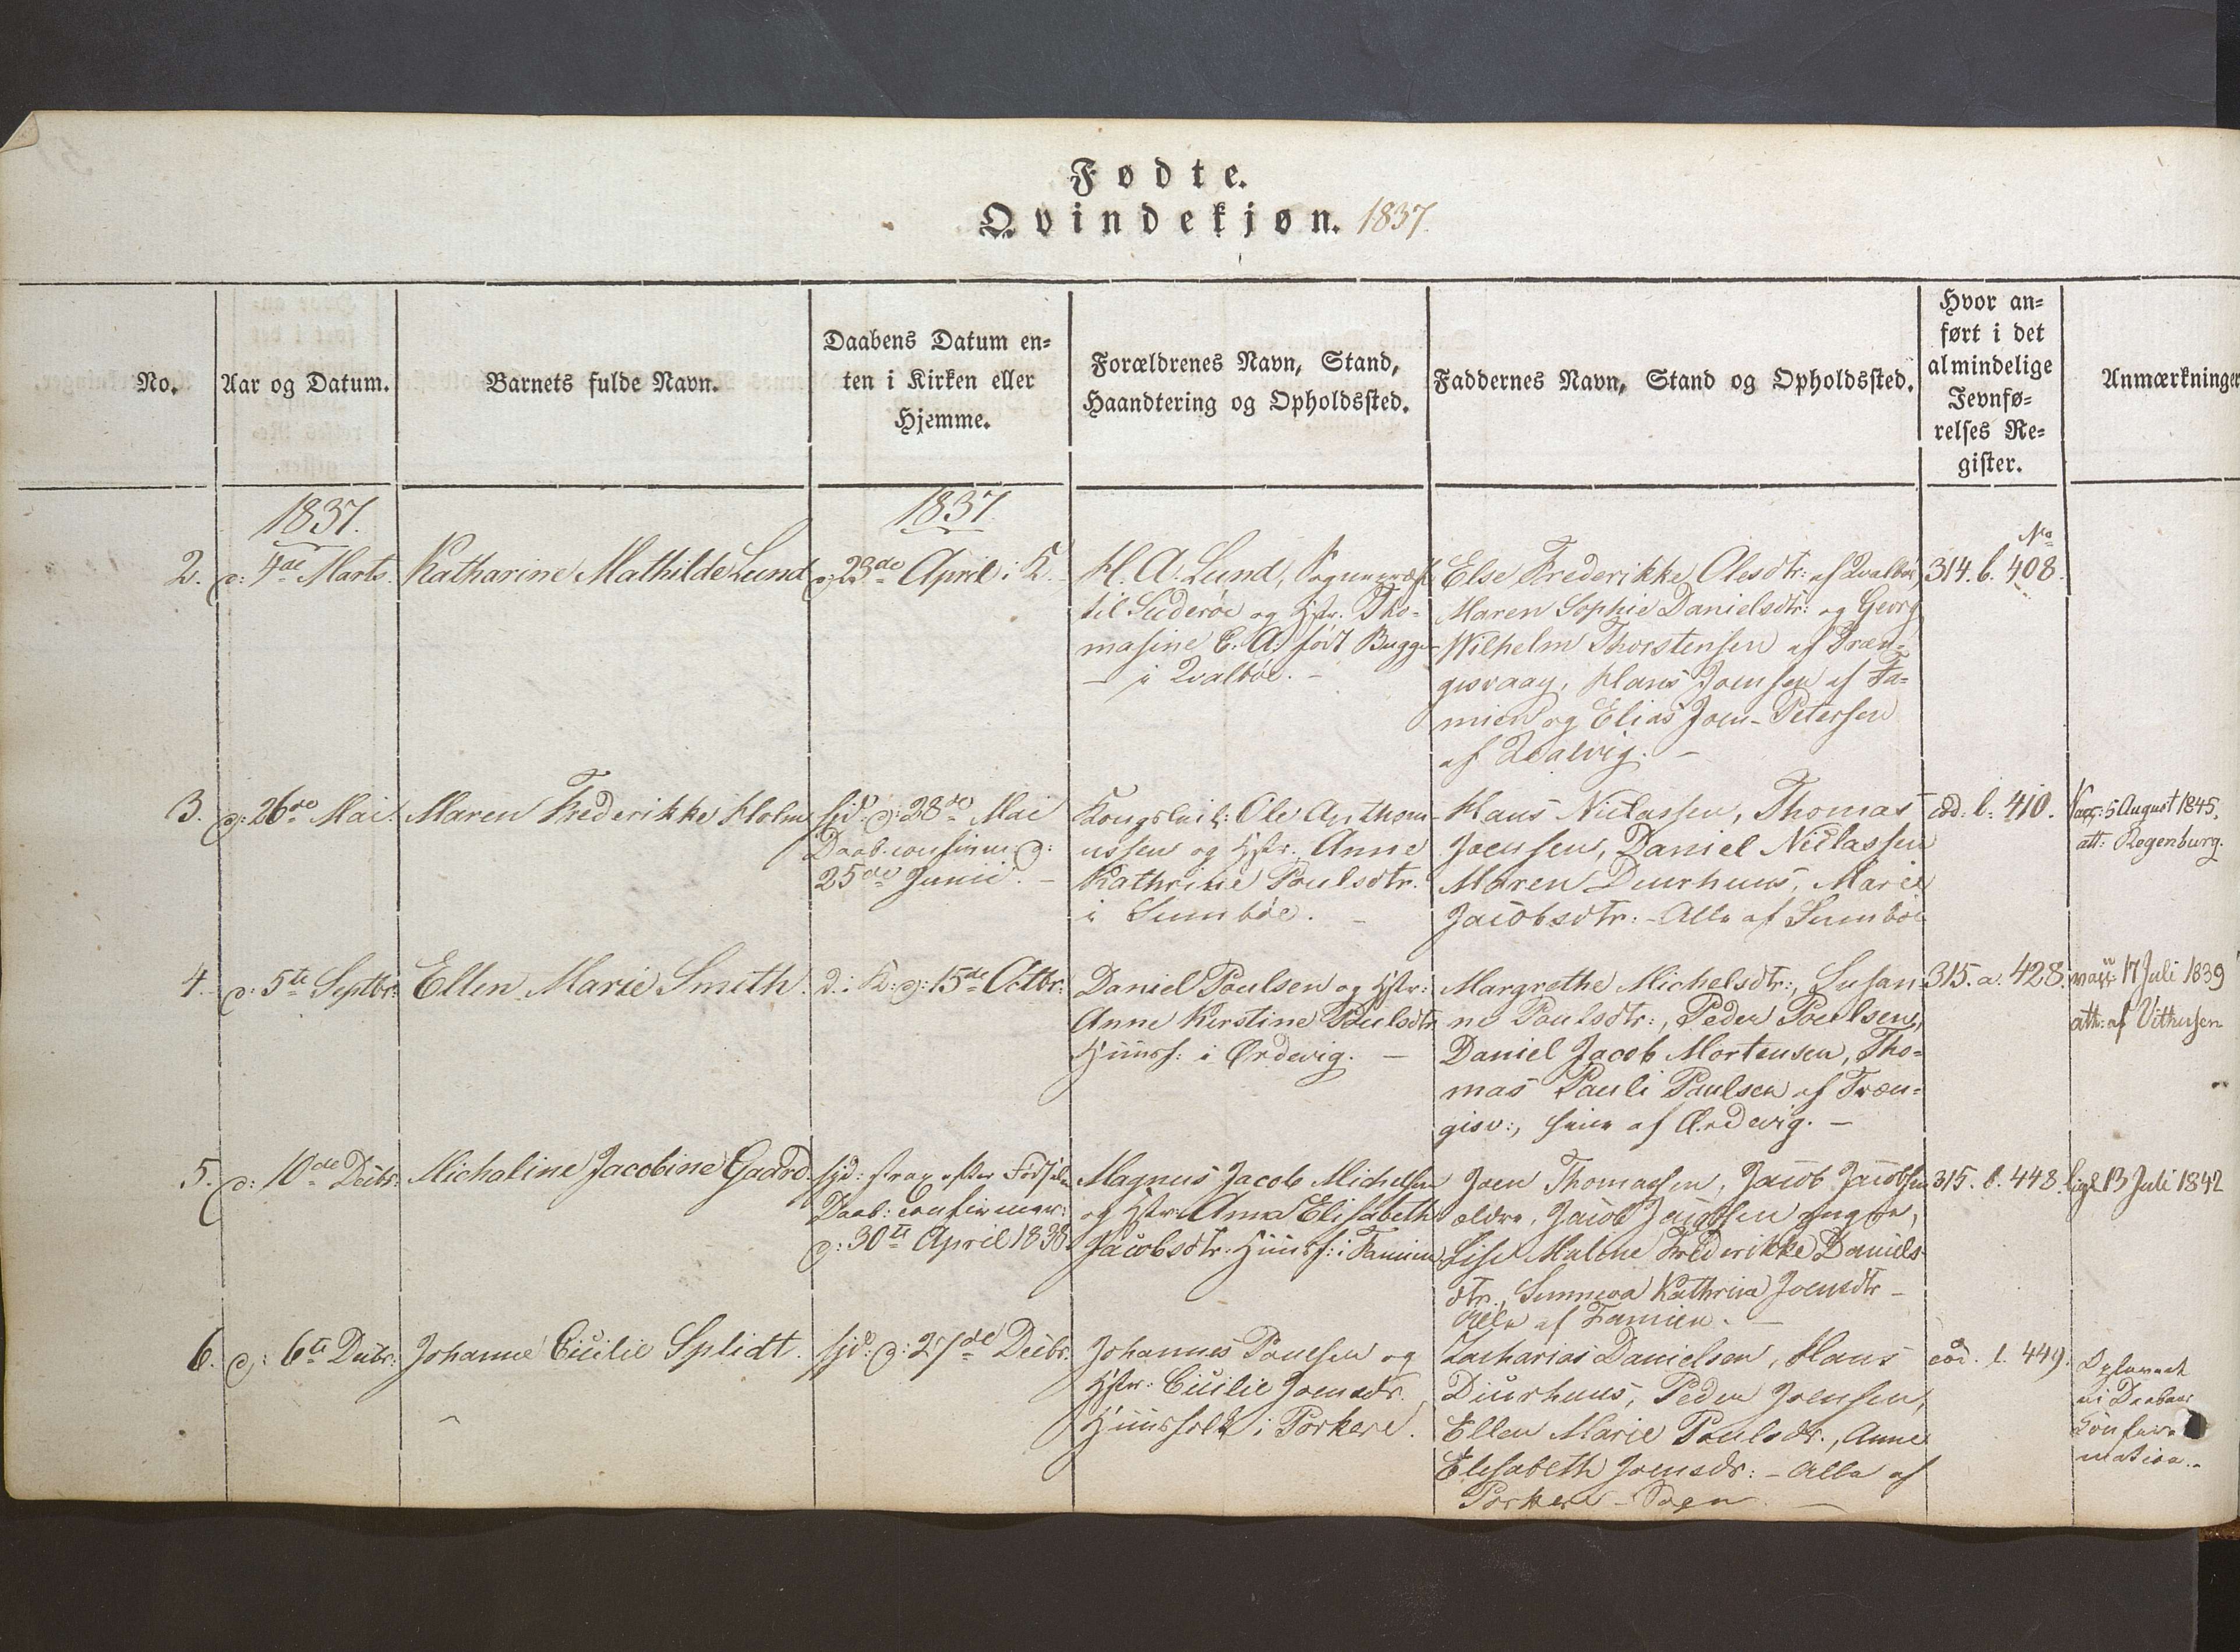 Fødte.
Qvindekjøn. 1837.
No.
Aar og Datum.
Barnets fulde Navn.
Daabens Datum en-
ten i Kirken eller
Hjemme.
Forældrenes Navn, Stand,
Haandtering og Opholdssted.
Faddernes Navn, Stand og Opholdssted.
Hvor an-
ført i det
almindelige
Jevnfø-
relses Re-
gister.
Anmærkninger
1837.
1837
No
2.
d: 4de Marts.
Katharine Mathilde Lund
d: 23de April i K.
H. A. Lund, Sognepræst
til Suderøe og Hstr. Tho-
masine E. A. født Bugge
- i Qvalbøe. -
Else Frederikke Olesdtr: af Qvalbøe,
Maren Sophie Danielsdtr: og Georg
Wilhelm Thorstensen af Træn-
gisvaag, Hans Joensen af Fa-
mien og Elias Joen-Petersen
af Hvalvig. -
314. b. 408.
3.
d: 26de Mai.
Maren Frederikke Holm
hjd: d: 28de Mai
Daab. confirm. d:
25de Junii. -
Kongsleil: Ole Anthoni-
ussen og Hstr. Anne
Kathrine Poulsdtr.
i Sumbøe. -
Hans Niclassen, Thomas
Joensen, Daniel Niclassen
Maren Duurhuus, Marie
Jacobsdtr: - Alle af Sumbøe
eod: l: 410.
Vacc: 5 August 1845.
att: Regenburg.
4.
d: 5te Septbr:
Ellen Marie Smith.
D. i K: d: 15de Octbr:
Daniel Poulsen og Hstr:
Anne Kirstine Poulsdtr
Huusf: i Ørdevig. -
Margrethe Michelsdtr:, Susan-
ne Poulsdtr:, Peder Poulsen,
Daniel Jacob Mortensen, Tho-
mas Pauli Paulsen af Træn-
gisv:, hine af Ørdevig. -
315. a. 428.
vacc: 17 Juli 1839
att: af Vithusen
5.
d: 10de Decbr:
Michaline Jacobine Gaard.
hjd: strax efter Fødselen
Daab: confirmer:
d: 30te April 1838
Magnus Jacob Michelsen
og Hstr: Anna Elisabeth
Jacobsdtr: Huusf: i Famien
Joen Thomassen, Jacob Jacobsen
ældre, Jacob Jacobsen yngre,
Lise Malene Frederikke Daniels-
dtr., Sunneva Kathrina Joensdtr -
Alle af Famien. -
315. b. 448.
ligl 13 Juli 1842
6.
d: 6te Decbr:
Johanne Cicilie Splidt.
hjd: d: 27de Decbr.
Johannes Poulsen og
Hstr: Cicilie Joensdr.
Huusfolk i Porkere.
Zacharias Danielsen, Hans
Diurhuus, Peder Joensen,
Ellen Marie Poulsdr., Anne
Elisabeth Joensdr: - Alle af
Porkere - Sogn. -
eod. l. 449.
ei Daabens
Confir-
mation.